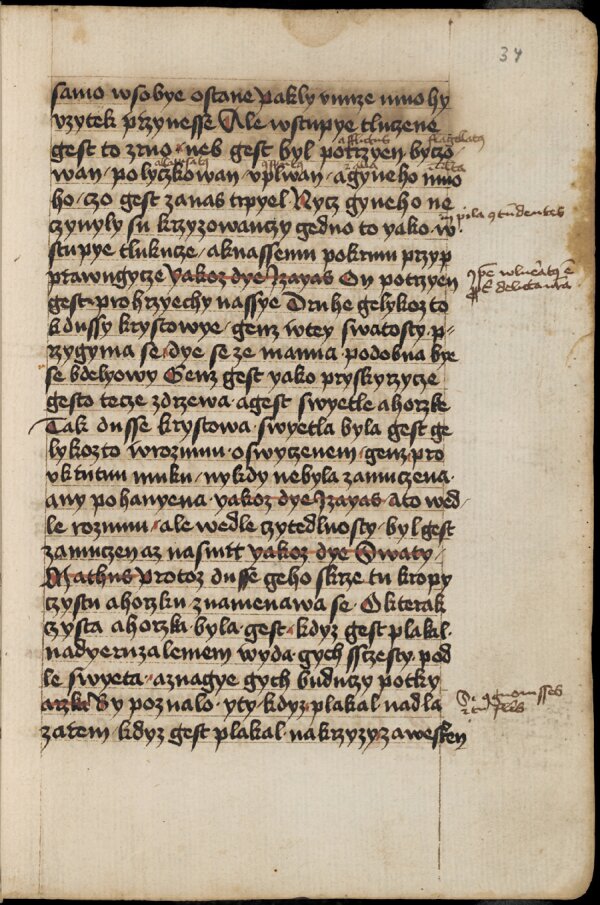 34
samo wsobye ostane pakly vmrze mnohy
vzytek przynesse Ale wstupye tluczene
gest to zrno neb gest byl potrzyen byczo
wan polyczkowan vplwan agyneho mno
ho czo gest zanas trpyel Nycz gyneho ne
czynyly su krzyzowanczy gedno to yako w
stupye tlukucze aknassemu pokrmu przyp
prawugycze yakoz dye Izayas On potrzyen
gest pro hrzyechy nassye Druhe gelykoz to
kdussy krystowye genz wtey swatosty p
rzygyma se dye se ze manna podobna bye
se bdelyowy Genz gest yako pryskyrzycze
gesto tecze zdrzewa agest swyetle ahorzke
Tak dusse krystowa swyetla byla gest ge
lykozto wrozumu oswyczenem genz pro
vkrutnu muku nykdy nebyla zamuczena
any pohanyena yakoz dye Izayas Ato wed
le rozumu ale wedle czytedlnosty byl gest
zamuczen az nasmrt yakoz dye Swaty
Mathus Protoz dusse geho skrze tu kropy
czystu ahorzku znamenawa se O kterak
czysta ahorzka byla gest kdyz gest plakal
nadyeruzalemem wyda gych sczesty pod
le swyeta aznagye gych buduczy potky
By poznalo yty kdyz plakal nad la
zarem kdyz gest plakal nakrzyzy zawessen